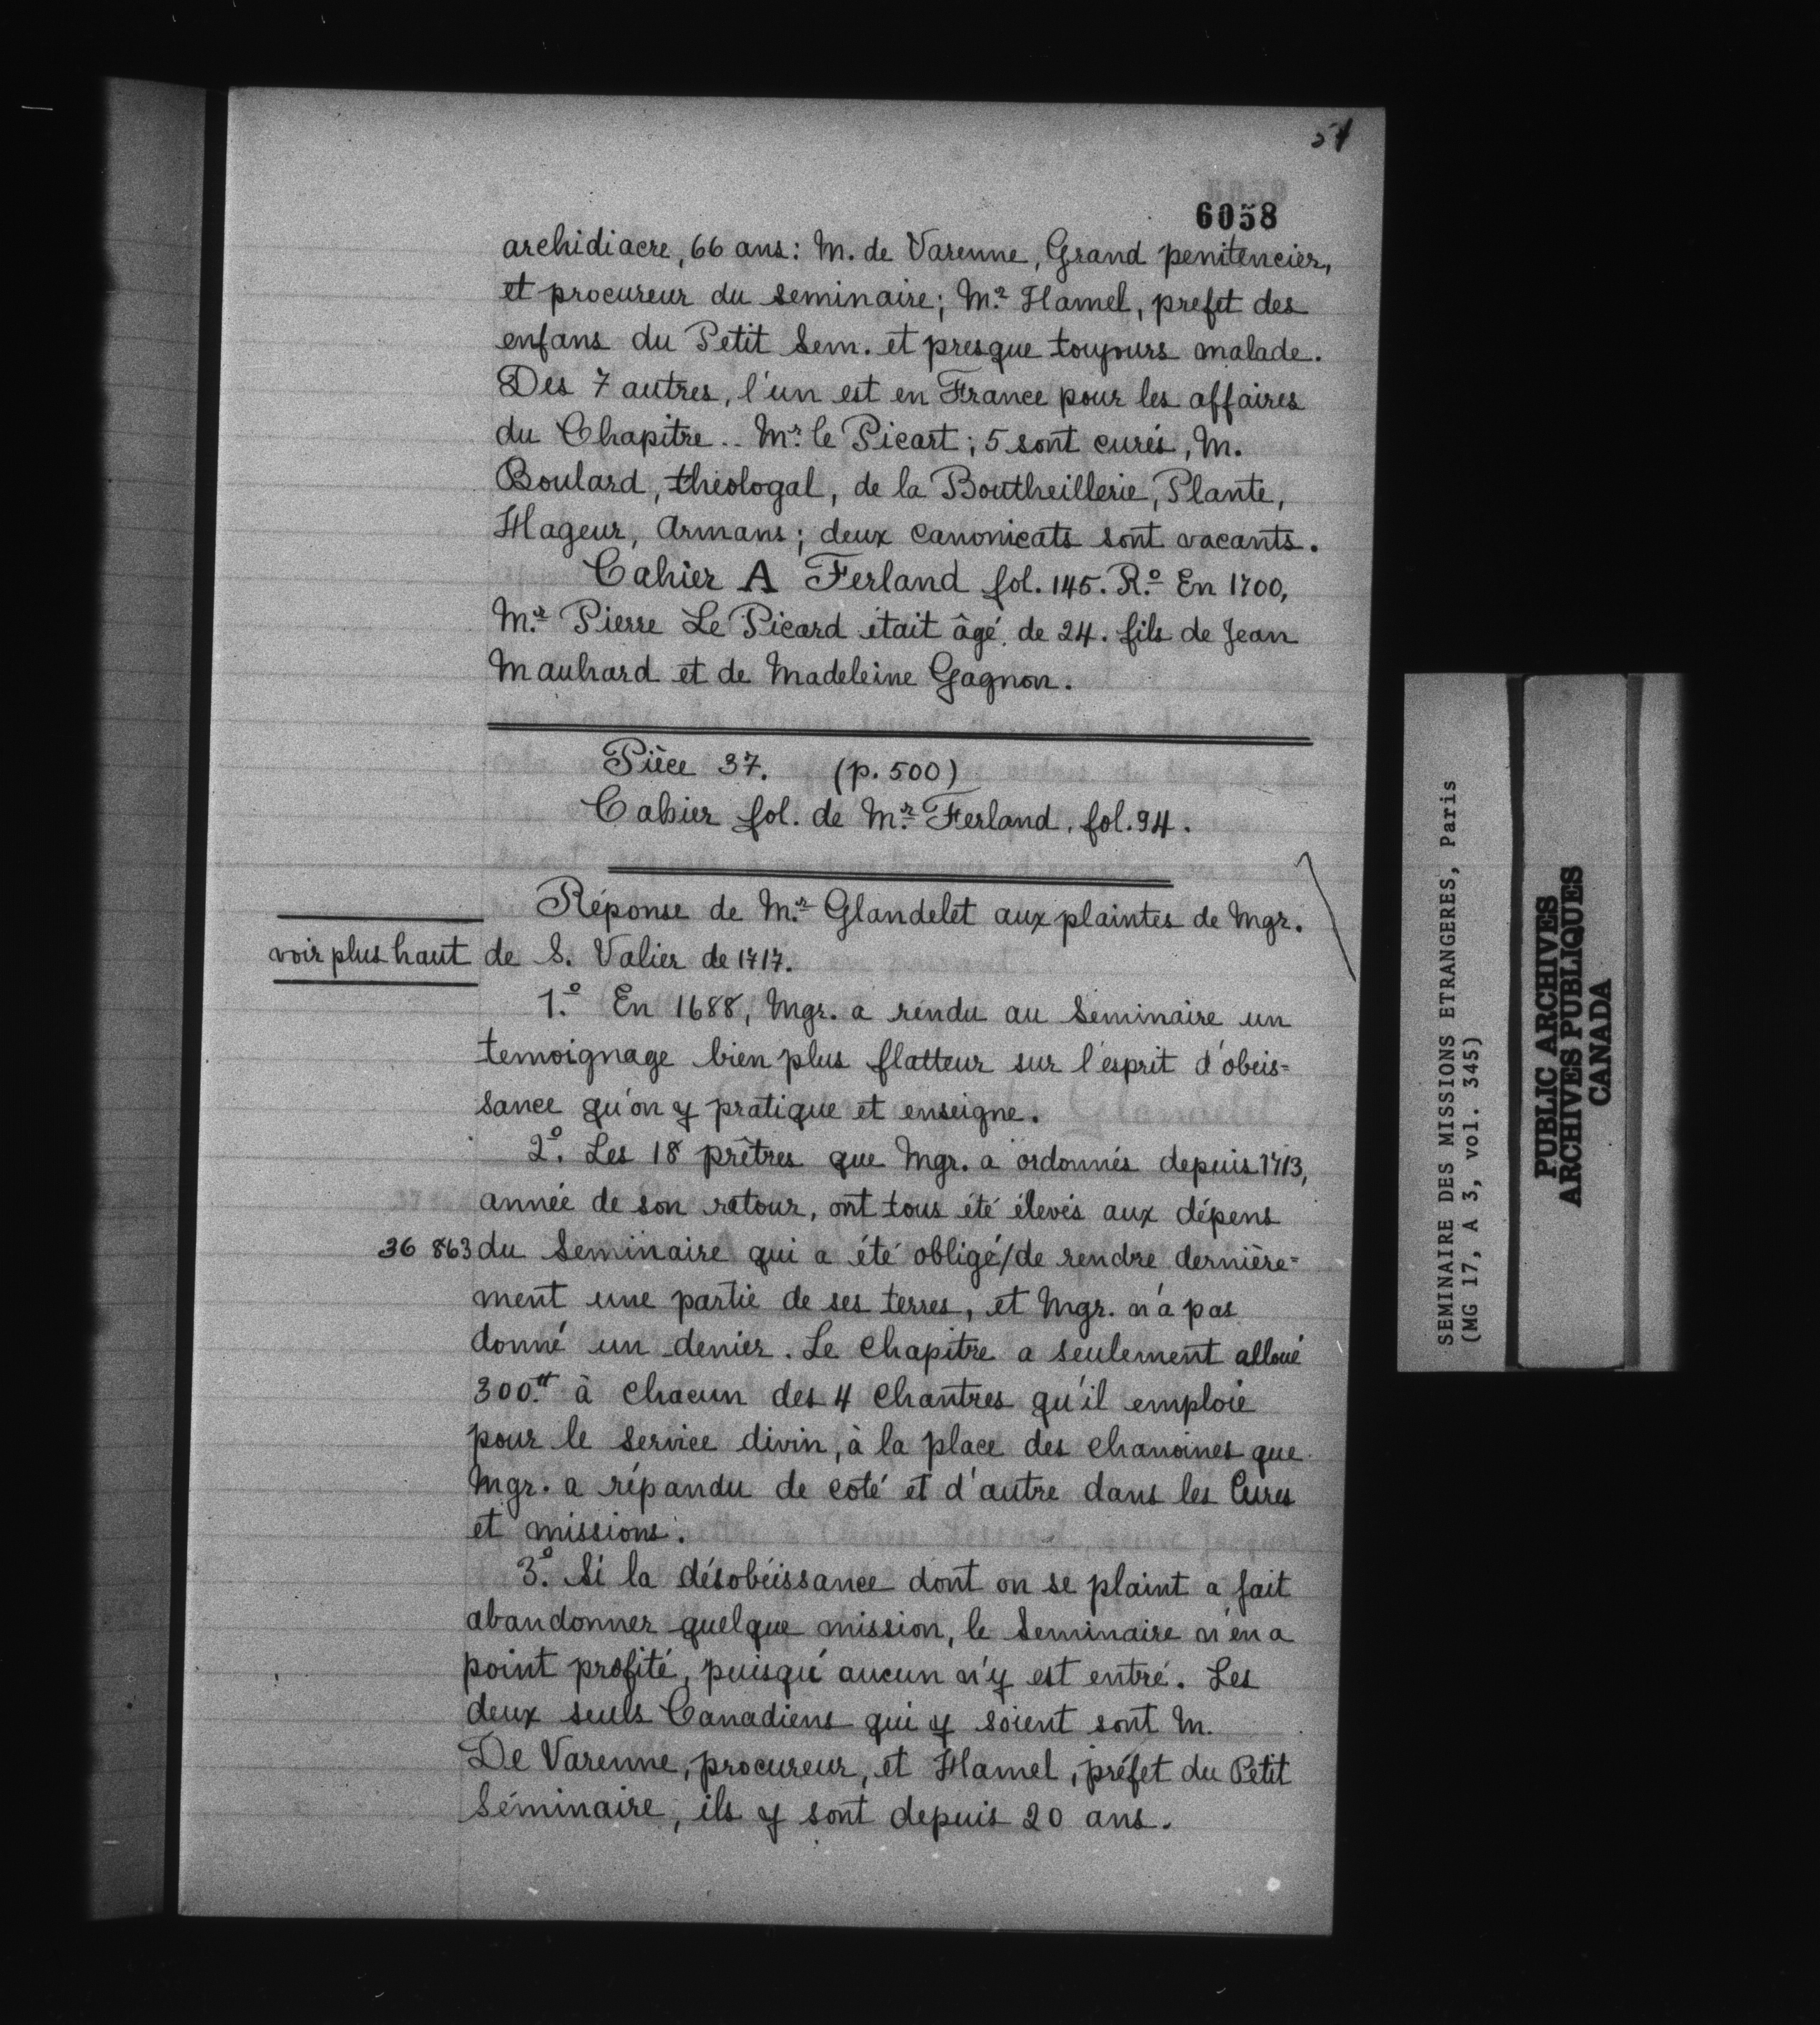 51
6058
archidiacre, 66 ans: M. de Varenne, Grand penitencier,
et procureur du seminaire; Mr. Hamel, prefet des
enfans du Petit Sem. et presque toujours malade.
Des 7 autres, l'un est en France pour les affaires
du Chapitre.. Mr. le Picart; 5 sont curés, M.
Boulard, théologal, de la Boutheillerie, Plante,
Hageur, Armans; deux canonicats sont vacants.
Cahier A Ferland fol. 145. R.o En 1700,
Mr. Pierre Le Picard était âgé de 24. fils de Jean
Mauhard et de Madeleine Gagnon.
Pièce 37. (p. 500)
Cahier fol. de Mr. Ferland, fol. 94.
Réponse de Mr. Glandelet aux plaintes de Mgr.
voir plus haut de S. Valier de 1717.
1.o En 1688, Mgr. a rendu au Seminaire un
temoignage bien plus flatteur sur l'esprit d'obeis=
sance qu'on y pratique et enseigne.
2.o Les 18 prêtres que Mgr. a ordonnés depuis 1713,
année de son retour, ont tous été élevés aux dépens
36 863 du Seminaire qui a été obligé/de rendre dernière=
ment une partie de ses terres, et Mgr. n'a pas
donné un denier. Le Chapitre a seulement alloué
300.tt à chacun des 4 Chantres qu'il emploie
pour le service divin, à la place des chanoines que
Mgr. a répandu de coté et d'autre dans les Cures
et missions.
3.o Si la désobéissance dont on se plaint a fait
abandonner quelque mission, le Seminaire n'en a
point profité, puisqu'aucun n'y est entré. Les
deux seuls Canadiens qui y soient sont M.
De Varenne, procureur, et Hamel, préfet du Petit
Séminaire, ils y sont depuis 20 ans.
SEMINAIRE DES MISSIONS ETRANGERES, Paris
(MG 17, A 3, vol. 345)
PUBLIC ARCHIVES
ARCHIVES PUBLIQUES
CANADA